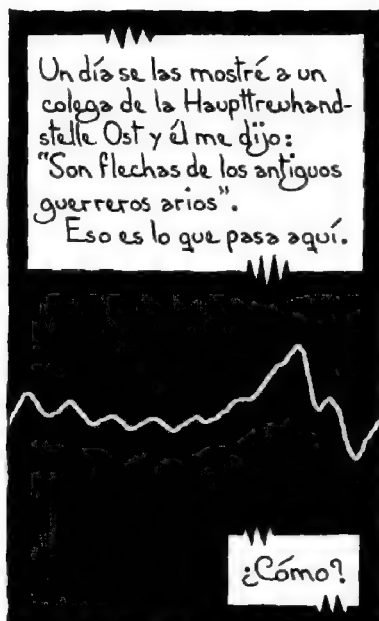 Un día se las mostré a un
colega de la Haupttreuhand-
stelle Ost y él me dijo:
"Son flechas de los antiguos
guerreros arios".
Eso es lo que pasa aquí.
¿Cómo?